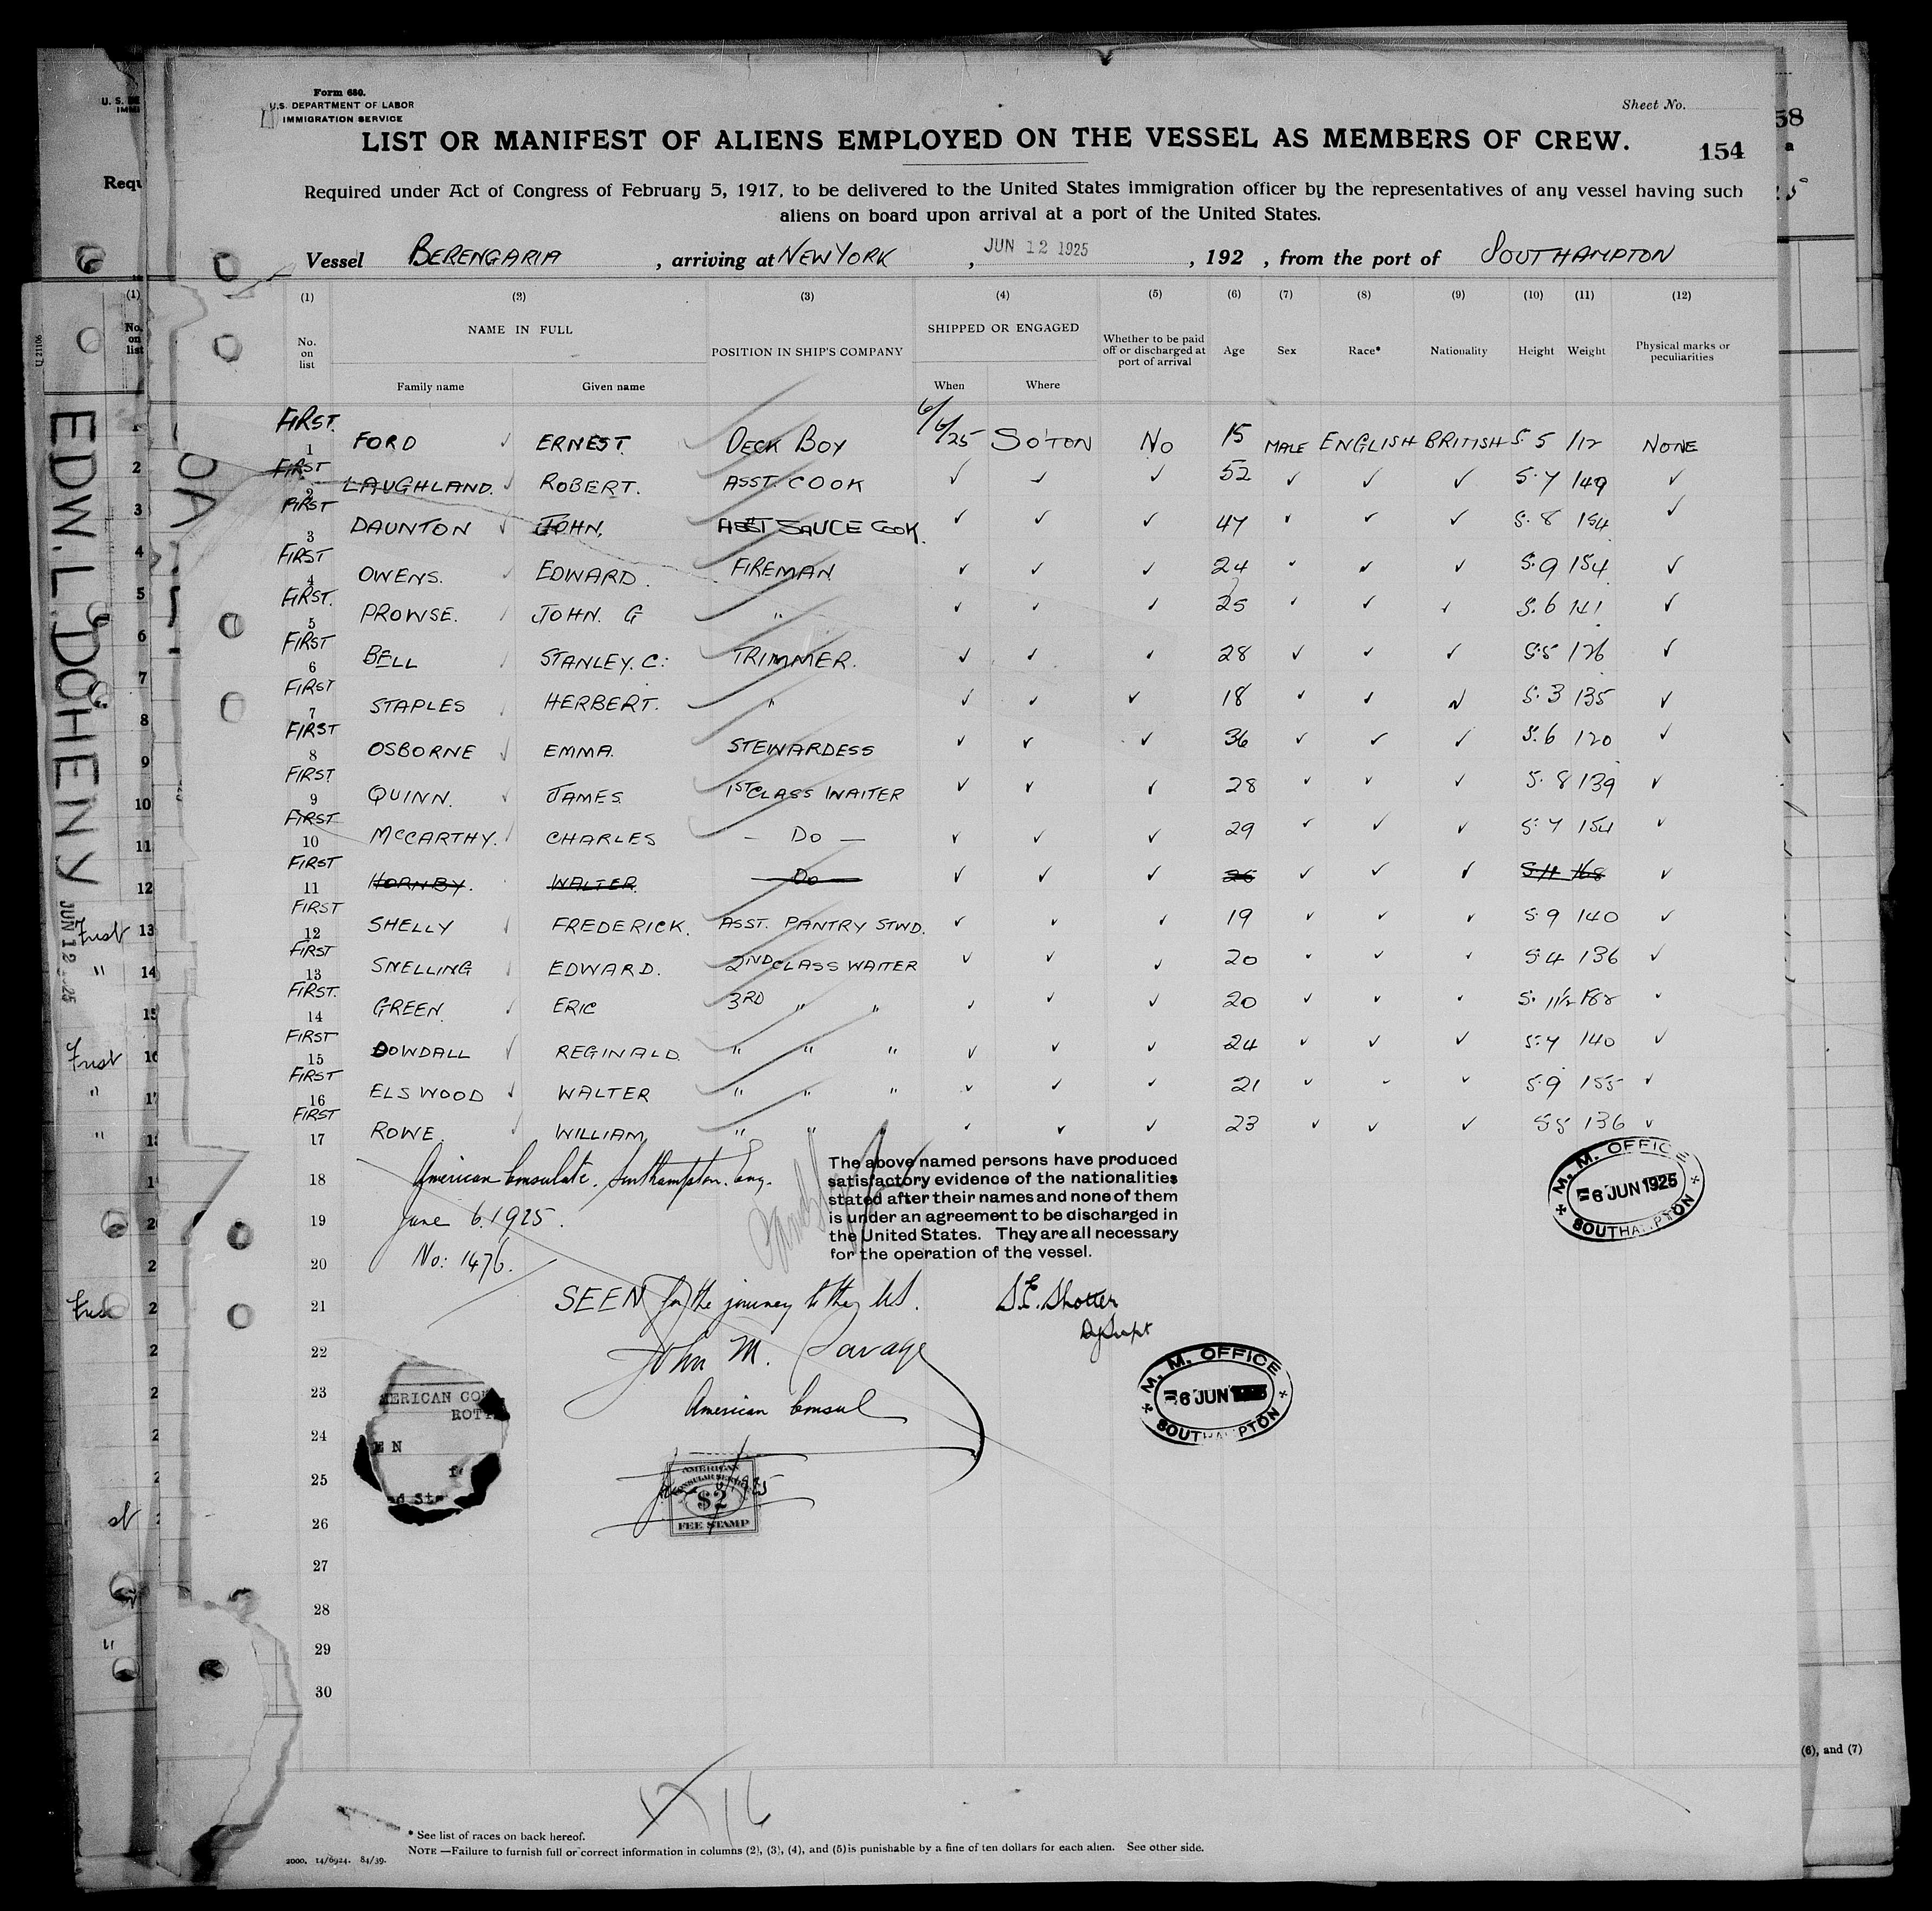 Form 680.
U.S. DEPARTMENT OF LABOR
IMMIGRATION SERVICE
Sheet No.
LIST OR MANIFEST OF ALIENS EMPLOYED ON THE VESSEL AS MEMBERS OF CREW.
154
Required under Act of Congress of February 5, 1917, to be delivered to the United States immigration officer by the representatives of any vessel having such
aliens on board upon arrival at a port of the United States.
Vessel BERENGARIA, arriving at NEW YORK, JUN 12 1925, 192 , from the port of SOUTHAMPTON
(1) (2) (3) (4) (5) (6) (7) (8) (9) (10) (11) (12)
No. on list NAME IN FULL POSITION IN SHIP'S COMPANY SHIPPED OR ENGAGED Whether to be paid off or discharged at port of arrival Age Sex Race* Nationality Height Weight Physical marks or peculiarities
Family name Given name When Where
FIRST. 1 FORD ✓ ERNEST. DECK BOY 6/6/25 SO'TON NO 15 MALE ENGLISH BRITISH 5.5 112 NONE
FIRST 2 LAUGHLAND. ✓ ROBERT. ASST. COOK ✓ ✓ ✓ 52 ✓ ✓ ✓ 5.7 149 ✓
FIRST 3 DAUNTON ✓ JOHN. ASST SAUCE COOK. ✓ ✓ ✓ 47 ✓ ✓ ✓ 5.8 154 ✓
FIRST 4 OWENS. ✓ EDWARD. FIREMAN ✓ ✓ ✓ 24 ✓ ✓ ✓ 5.9 154 ✓
FIRST. 5 PROWSE. ✓ JOHN. G " ✓ ✓ ✓ 25 ✓ ✓ ✓ 5.6 141 ✓
FIRST 6 BELL ✓ STANLEY. C. TRIMMER. ✓ ✓ ✓ 28 ✓ ✓ ✓ 5.5 126 ✓
FIRST 7 STAPLES ✓ HERBERT. " ✓ ✓ ✓ 18 ✓ ✓ ✓ 5.3 135 ✓
FIRST 8 OSBORNE ✓ EMMA. STEWARDESS ✓ ✓ ✓ 36 ✓ ✓ ✓ 5.6 120 ✓
FIRST 9 QUINN. ✓ JAMES. 1ST CLASS WAITER ✓ ✓ ✓ 28 ✓ ✓ ✓ 5.8 139 ✓
FIRST 10 McCARTHY. ✓ CHARLES — DO — ✓ ✓ ✓ 29 ✓ ✓ ✓ 5.7 154 ✓
FIRST 11 HORNBY. WALTER. DO ✓ ✓ ✓ 26 ✓ ✓ ✓ 5.11 168 ✓
FIRST 12 SHELLY ✓ FREDERICK. ASST. PANTRY STWD. ✓ ✓ ✓ 19 ✓ ✓ ✓ 5.9 140 ✓
FIRST 13 SNELLING ✓ EDWARD. 2ND CLASS WAITER ✓ ✓ ✓ 20 ✓ ✓ ✓ 5.4 136 ✓
FIRST. 14 GREEN ✓ ERIC 3RD " " ✓ ✓ ✓ 20 ✓ ✓ ✓ 5. 11½ ✓
FIRST 15 DOWDALL ✓ REGINALD. " " " ✓ ✓ ✓ 24 ✓ ✓ ✓ 5.7 140 ✓
FIRST 16 ELSWOOD ✓ WALTER " " " ✓ ✓ ✓ 21 ✓ ✓ ✓ 5.9 155 ✓
FIRST 17 ROWE. ✓ WILLIAM " " ✓ ✓ ✓ 23 ✓ ✓ ✓ 5.5 136 ✓
18 American Consulate. Southampton. Eng.
19 June 6. 1925.
20 No: 1476.
The above named persons have produced
satisfactory evidence of the nationalities
stated after their names and none of them
is under an agreement to be discharged in
the United States. They are all necessary
for the operation of the vessel.
M. M. OFFICE
6 JUN 1925
SOUTHAMPTON
21 SEEN for the journey to the U.S.
S.E. Shotter
Dy Supt
22 John M. Savage
23 American Consul
M. M. OFFICE
6 JUN
SOUTHAMPTON
24
25
26
AMERICAN
CONSULAR SERVICE
$2
FEE STAMP
June 6/1925
27
28
29
30
17 16
* See list of races on back hereof.
NOTE —Failure to furnish full or correct information in columns (2), (3), (4), and (5) is punishable by a fine of ten dollars for each alien. See other side.
2000. 14/6924. 84/39.
EDW. L. DOHENY
JUN 12
U 21106
(6), and (7)
58